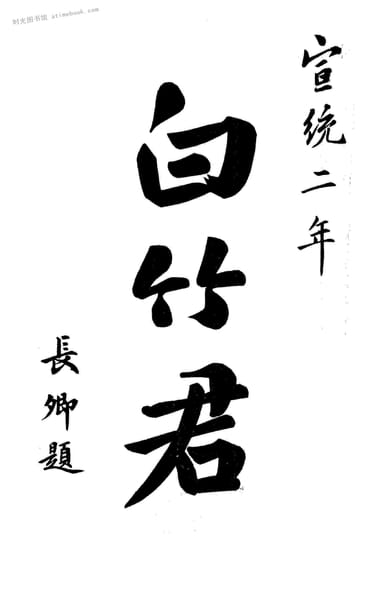 时光图书馆 atimebook.com
宣统二年
白竹君
長卿題